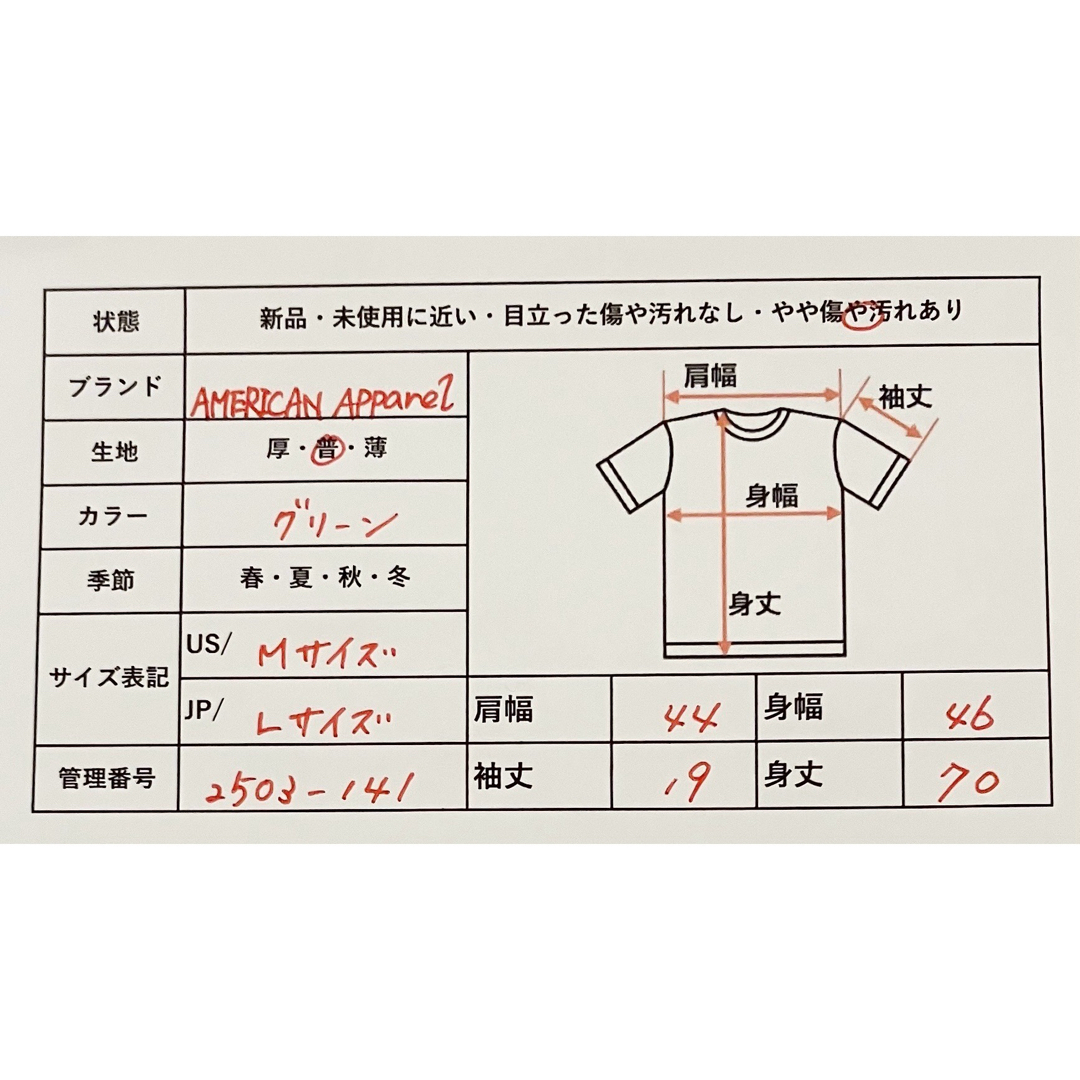 状態 新品・未使用に近い・目立った傷や汚れなし・やや傷や汚れあり
ブランド AMERICAN APPareL
生地 厚・普・薄
カラー グリーン
季節 春・夏・秋・冬
サイズ表記 US/ Mサイズ
JP/ Lサイズ
管理番号 2503-141
肩幅
袖丈
身幅
身丈
肩幅 44 身幅 46
袖丈 19 身丈 70